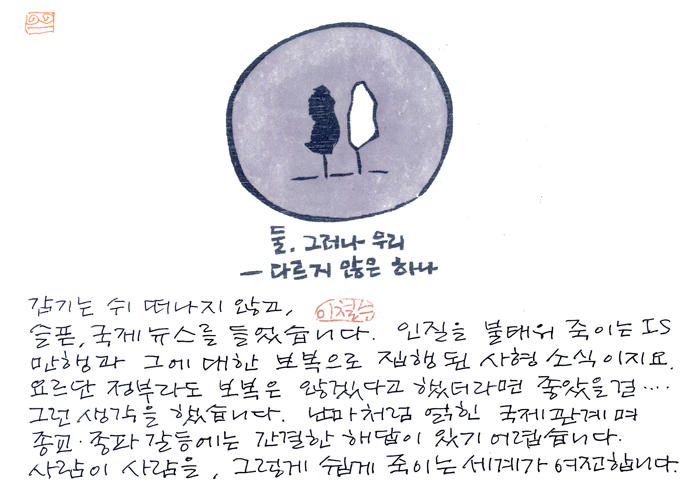 둘. 그러나 우리
— 다르지 않은 하나
감기는 쉬 떠나지 않고,
이철수
슬픈, 국제뉴스를 들었습니다. 인질을 불태워 죽이는 IS
만행과 그에 대한 보복으로 집행된 사형 소식이지요.
요르단 정부라도 보복은 않겠다고 했더라면 좋았을걸····
그런 생각을 했습니다. 난마처럼 얽힌 국제관계며
종교·종파갈등에는 간결한 해답이 있기 어렵습니다.
사람이 사람을, 그렇게 쉽게 죽이는 세계가 여전합니다.